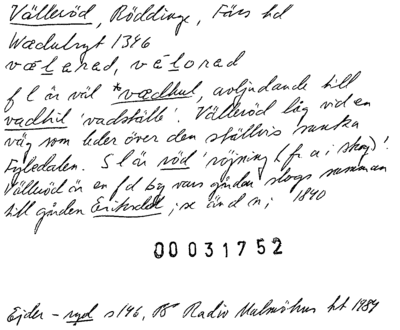 Välleröd, Röddinge, Färs hd
Wædulryt 1346
væḻarad, væḻorad
f l är väl *vædhul, avljudande till
vadhil 'vadställe'. Välleröd låg vid en
väg som leder över den ställvis sanka
Fyledalen. S l är röd 'röjning (fr a i skog)'.
Välleröd är en f d by vars gårdar slogs samman
till gården Eriksdal; se änd n; 1840
00031752
Ejder - ryd s 146, Radio Malmöhus ht 1984